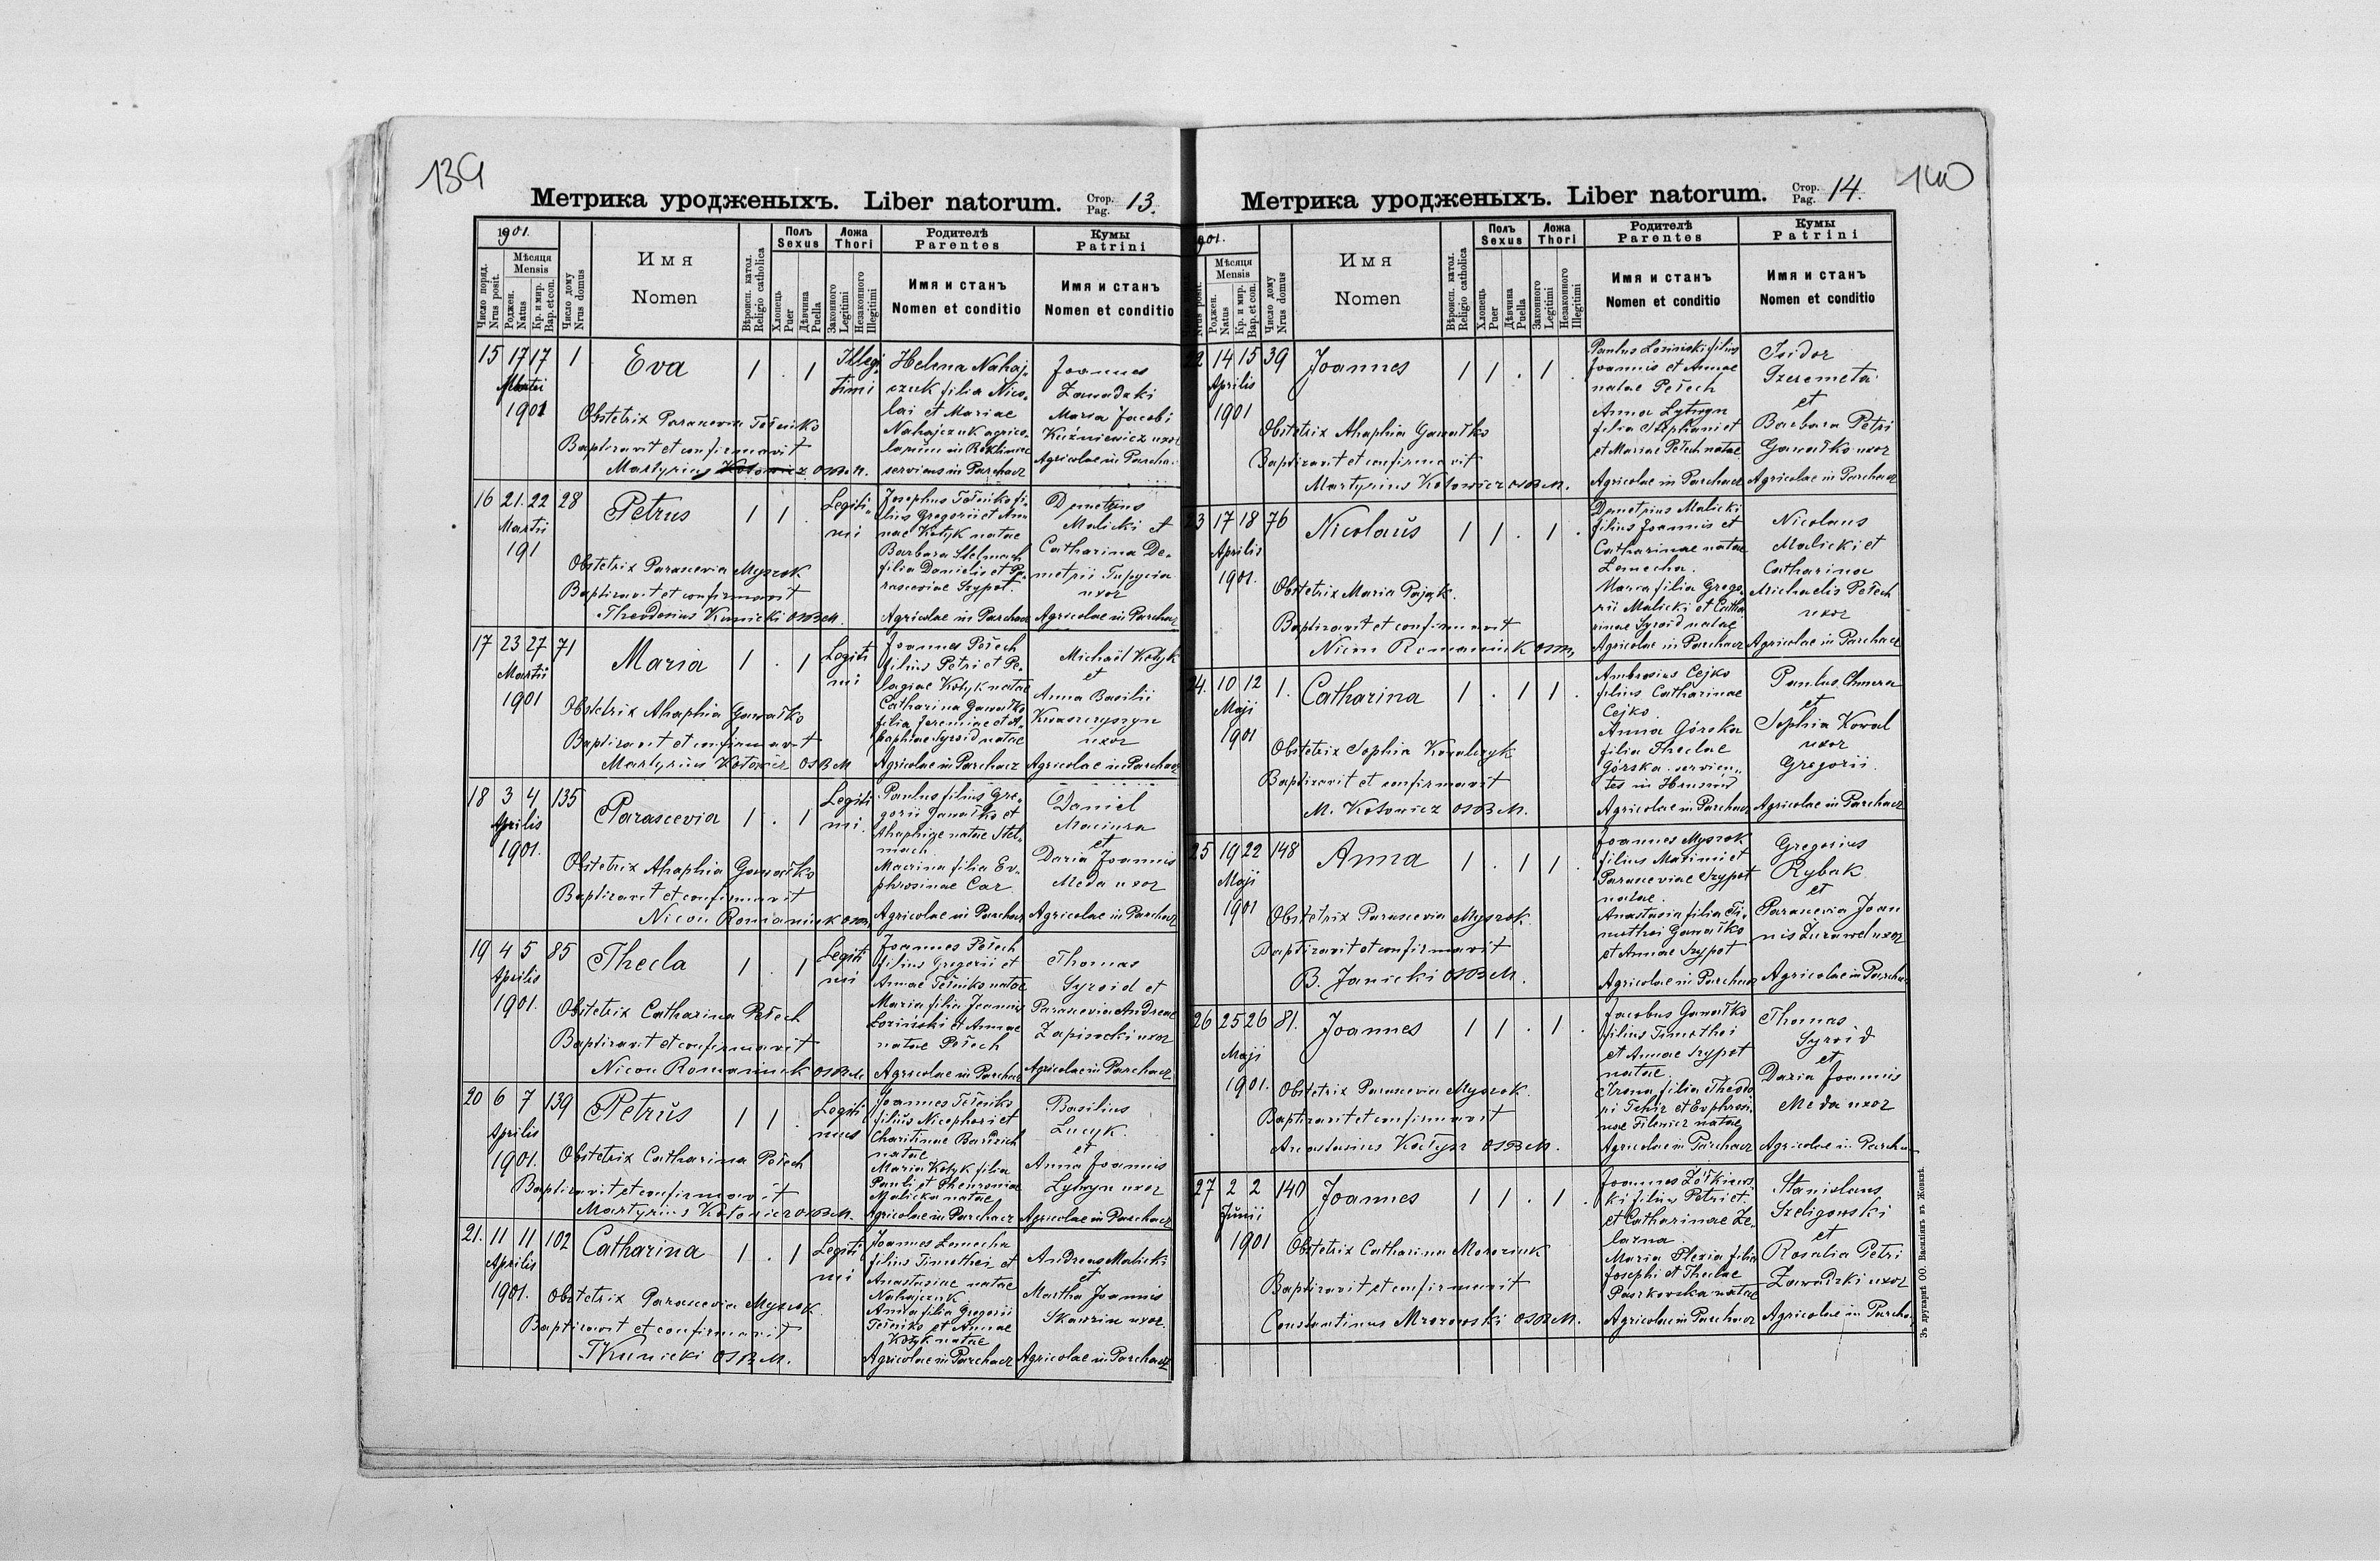 139
Метрика уродженыхъ. Liber natorum. Стор. Pag. 13.
1901.
Число поряд. Nrus posit.
Мѣсяця Mensis
Роджен. Natus
Кр. и мир. Bap. et con.
Число дому Nrus domus
Имя Nomen
Вѣроисп. катол. Religio catholica
Полъ Sexus
Хлопець Puer
Дѣвчина Puella
Ложа Thori
Законного Legitimi
Незаконного Illegitimi
Родителѣ Parentes
Имя и станъ Nomen et conditio
Кумы Patrini
Имя и станъ Nomen et conditio
15 17 17 1 Eva 1 . 1 Illegi-
timi
Martii
1901
Obstetrix Parascevia
Baptizavit et confirmavit
Martyrius Kotowicz OSBM.
Helena Nahaj-
czuk filia Nico-
lai et Mariae
Nahajczuk agrico-
larum in
serviens in Parchacz
Joannes
Zawadzki
Maria Jacobi
Kuźniewicz uxor
Agricolae in Parchacz
16 21. 22 28 Petrus 1 1 . Legiti-
mi
Martii
191
Obstetrix Parascevia Myszok
Baptizavit et confirmavit
Theodosius Kunicki OSBM.
Josephus fi-
lius Gregorii et An-
nae Kotyk natae
Barbara Stelmach
filia Danielis et Pa-
rasceviae Szypot.
Agricolae in Parchacz
Demetrius
Malicki et
Catharina De-
metrii
uxor
Agricolae in Parchacz
17 23 27 71 Maria 1 . 1 Legiti
mi
Martii
1901
Obstetrix Ahaphia Gawałko
Baptizavit et confirmavit
Martyrius Kotowicz OSBM
Joannes Pełech
filius Petri et Pe-
lagiae Kotyk natae
Catharina Gawałko
filia Jeremiae et A-
haphiae Syroid natae
Agricolae in Parchacz
Michaël Kotyk
et
Anna Basilii
uxor
Agricolae in Parchacz
18 3 4 135 Parascevia 1 . 1 Legiti
mi.
Aprilis
1901.
Obstetrix Ahaphia Gawałko
Baptizavit et confirmavit
Nicon Romaniuk OSBM
Paulus filius Gre-
gorii Gawałko et
Ahaphiae natae Stel-
mach
Macrina filia Eu-
phrosinae Car
Agricolae in Parchacz
Daniel
Maciura
et
Daria Joannis
Meda uxor
Agricolae in Parchacz
19 4 5 85 Thecla 1 . 1 Legiti
mi
Aprilis
1901.
Obstetrix Catharina Pełech
Baptizavit et confirmavit
Nicon Romaniuk OSBM
Joannes Pełech
filius Gregorii et
Annae natae
Maria filia Joannis
Łoziński et Annae
natae Pełech
Agricolae in Parchacz
Thomas
Syroid et
Parascevia Andreae
Zapisocki uxor
Agricolae in Parchacz
20 6 7 139 Petrus 1 1 . Legiti
mus
Aprilis
1901.
Obstetrix Catharina Pełech
Baptizavit et confirmavit
Martyrius Kotowicz OSBM.
Joannes
filius Nicephori et
Charitinae
natae
Maria Kotyk filia
Pauli et
Malicka natae
Agricolae in Parchacz
Basilius
Lucyk.
et
Anna Joannis
Lytwyn uxor
Agricolae in Parchacz
21. 11 11 102 Catharina 1 . 1 Legiti
mi
Aprilis
1901.
Obstetrix Parascevia Myszok
Baptizavit et confirmavit
T. Kunicki OSBM.
Joannes Lemecha
filius Timothei et
Anastasiae natae
Nahajczuk
Anna filia Gregorii
et Annae
Kotyk natae
Agricolae in Parchacz
Andreas Malicki
et
Martha Joannis
uxor
Agricolae in Parchacz
140
Метрика уродженыхъ. Liber natorum. Стор. Pag. 14.
1901.
Nrus posit.
Мѣсяця Mensis
Роджен. Natus
Кр. и мир. Bap. et con.
Число дому Nrus domus
Имя Nomen
Вѣроисп. катол. Religio catholica
Полъ Sexus
Хлопець Puer
Дѣвчина Puella
Ложа Thori
Законного Legitimi
Незаконного Illegitimi
Родителѣ Parentes
Имя и станъ Nomen et conditio
Кумы Patrini
Имя и станъ Nomen et conditio
22 14 15 39 Joannes 1 1 . 1 .
Aprilis
1901
Obstetrix Ahaphia Gawałko
Baptizavit et confirmavit
Martyrius Kotowicz OSBM.
Paulus Łoziński filius
Joannis et Annae
natae Pełech
Anna Lytwyn
filia Stephani et
et Mariae Pełech natae
Agricolae in Parchacz
Isidor
Szeremeta
et
Barbara Petri
Gawałko uxor
Agricolae in Parchacz
23 17 18 76 Nicolaus 1 1 . 1 .
Aprilis
1901.
Obstetrix Maria Pająk.
Baptizavit et confirmavit
Nicon Romaniuk OSBM
Demetrius Malicki
filius Joannis et
Catharinae natae
Lemecha.
Maria filia Grego-
rii Malicki et Catha-
rinae Syroid natae
Agricolae in Parchacz
Nicolaus
Malicki et
Catharina
Michaelis Pełech
uxor
Agricolae in Parchacz
24. 10 12 1. Catharina 1 . 1 1 .
Maji
1901
Obstetrix Sophia Kowalczyk
Baptizavit et confirmavit
M. Kotowicz OSBM.
Ambrosius Cejko
filius Catharinae
Cejko.
Anna Górska
filia Theclae
Górska servien-
tes in
Agricolae in Parchacz
Paulus Chmera
et
Sophia Kowal
uxor
Gregorii.
Agricolae in Parchacz
25 19 22 148 Anna 1 . 1 1 .
Maji
1901
Obstetrix Parascevia Myszok
Baptizavit et confirmavit
B. Janicki OSBM.
Joannes Myszok
filius Maximi et
Parasceviae Szypot
natae.
Anastasia filia Ti-
mothei Gawałko
et Annae Szypot
Agricolae in Parchacz
Gregorius
Rybak
et
Parascevia Joan
nis Żurawel uxor
Agricolae in Parchacz
26 25 26 81. Joannes 1 1 . 1 .
Maji
1901.
Obstetrix Parascevia Myszok.
Baptizavit et confirmavit
Anastasius OSBM.
Jacobus Gawałko
filius Timothei
et Annae Szypot
natae.
Irena filia Theodo
ri et Euphrosi-
nae natae
Agricolae in Parchacz
Thomas
Syroid
et
Daria Joannis
Meda uxor
Agricolae in Parchacz
27 2 2 140 Joannes 1 1 . 1 .
Junii
1901
Obstetrix Catharina Moroziuk
Baptizavit et confirmavit
Constantinus Mrozowski OSBM.
Joannes Żółkiews
ki filius Petri et.
et Catharinae Że-
lazna.
Maria filia
Josephi et Theclae
Paszkowska natae
Agricolae in Parchacz
Stanislaus
Szeligowski
et
Rosalia Petri
Zawadzki uxor
Agricolae in Parchacz
Зъ друкарнѣ ОО. Василіянъ въ Жовквѣ.